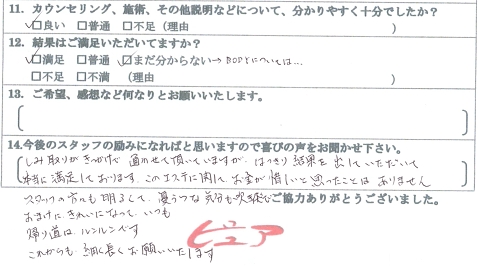 11. カウンセリング、施術、その他説明などについて、分かりやすく十分でしたか？
☑良い　□普通　□不足（理由　　　　　）
12. 結果はご満足いただいてますか？
☑満足　□普通　☑まだ分からない→BODYについては…
□不足　□不満　（理由　　　　　）
13. ご希望、感想など何なりとお願いいたします。
14.今後のスタッフの励みになればと思いますので喜びの声をお聞かせ下さい。
しみ取りがきっかけで 通わせて頂いていますが、はっきり結果を出していただいて
本当に満足しております。このエステに関して お金が惜しいと思ったことは ありません
スタッフの方々も 明るくて、憂うつな気分も吹き
ご協力ありがとうございました。
おまけに きれいになって、いつも
帰り道は ルンルンです
これからも 細く長く お願いいたします
ピュア